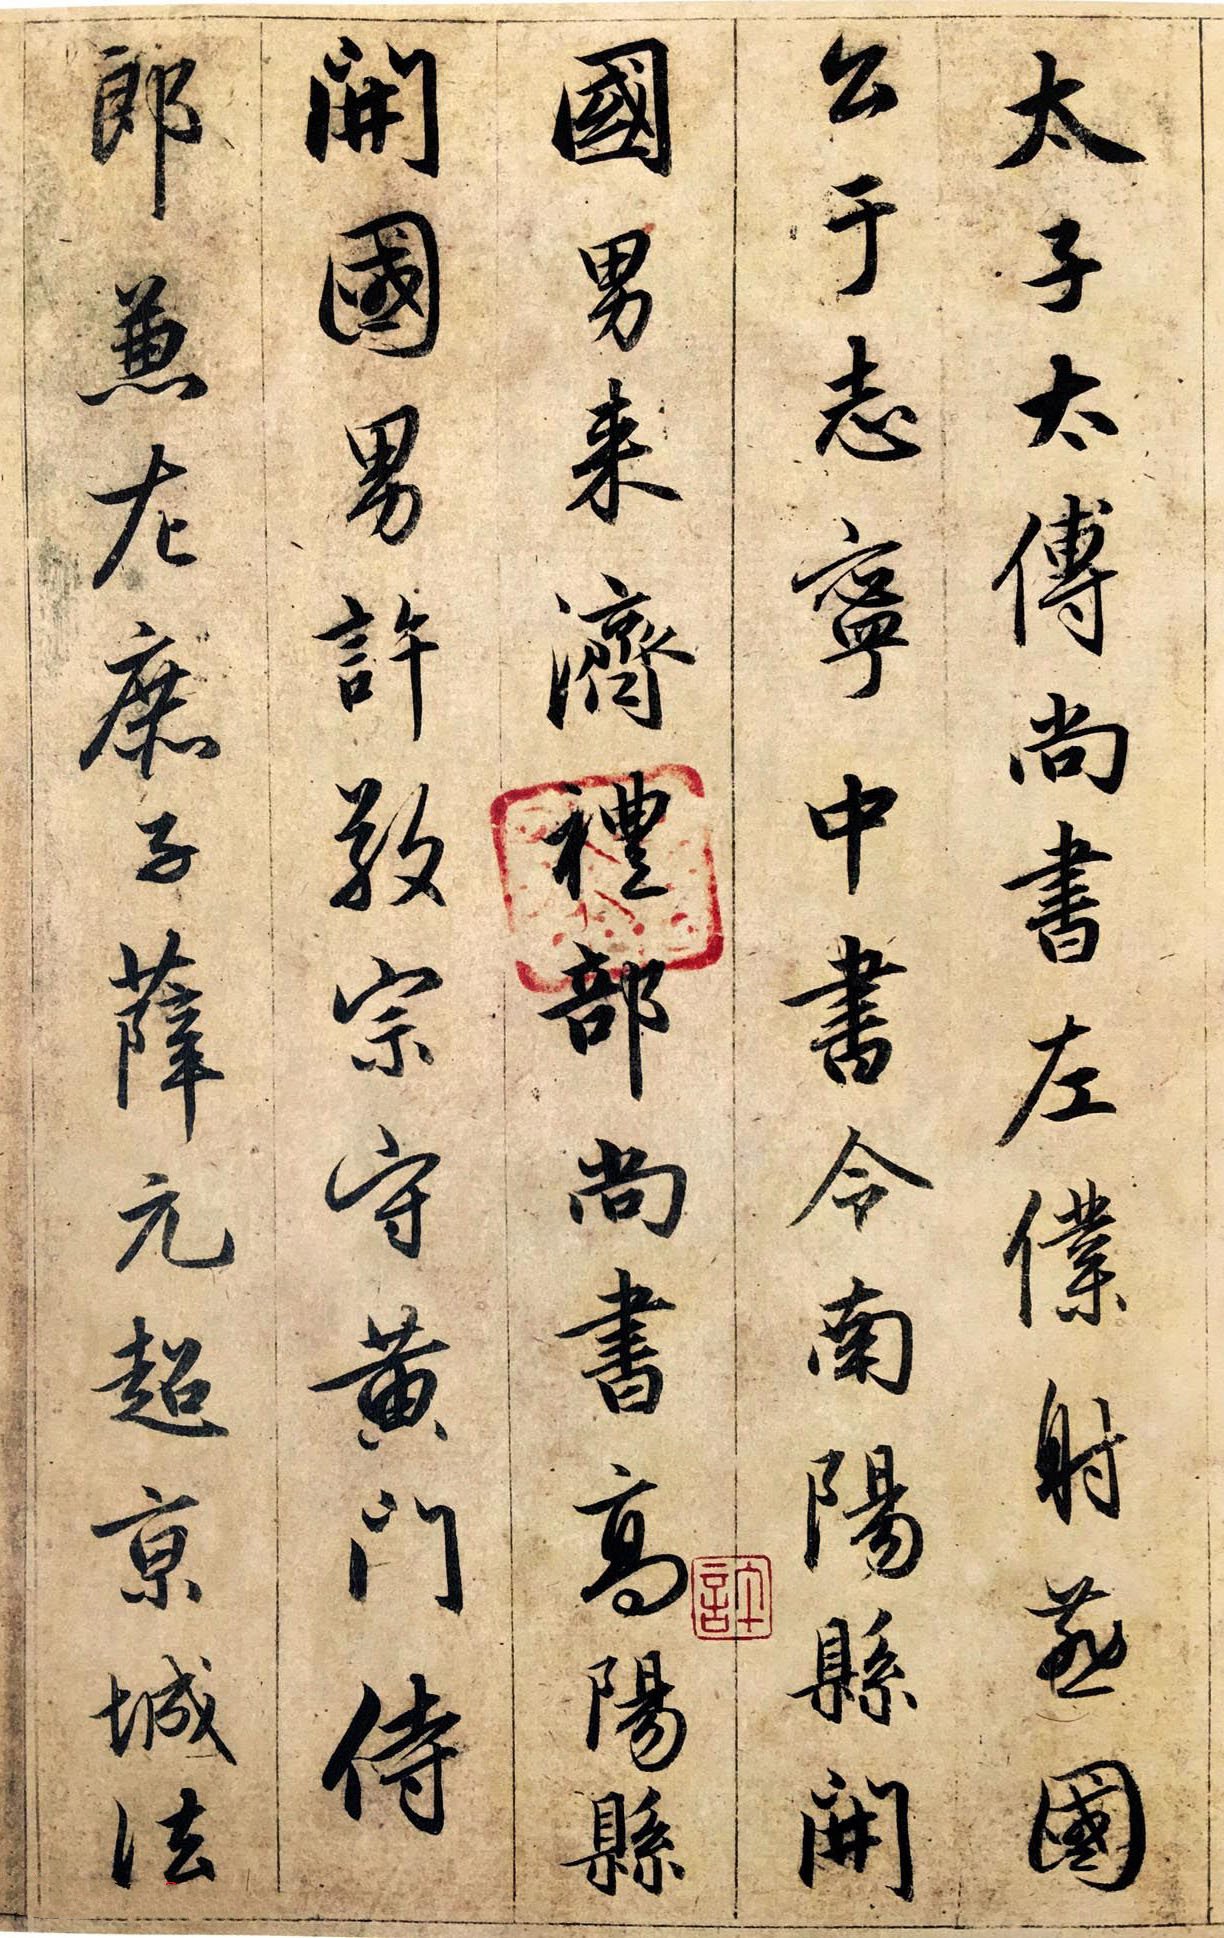 太子太傅尚書左僕射燕國
公于志寧中書令南陽縣開
國男来濟禮部尚書高陽縣
開國男許敬宗守黄門侍
郎兼左庶子薛元超京城法
許